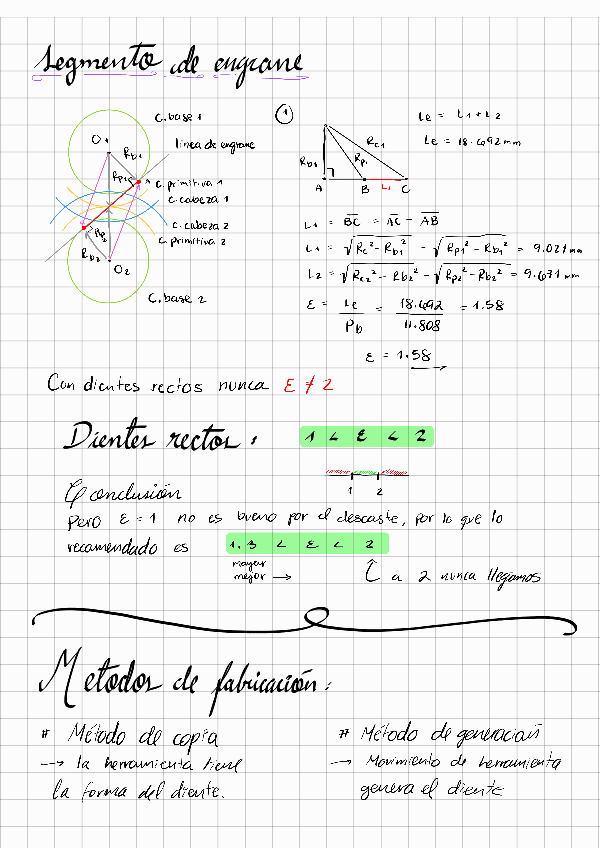 Segmento de engrane
C. base 1
O1
Rb1
línea de engrane
Rp1
C. primitiva 1
C. cabeza 1
C. cabeza 2
C. primitiva 2
Rp2
Rb2
O2
C. base 2
1
Rb1
Rp1
Rc1
A B L1 C
Le = L1 + L2
Le = 18.692 mm
L1 = BC = AC - AB
L1 = √Rc² - Rb1² - √Rp1² - Rb1² = 9.021 mm
L2 = √Rc2² - Rb2² - √Rp2² - Rb2² = 9.671 mm
ε = Le / Pb = 18.692 / 11.808 = 1.58
ε = 1.58
Con dientes rectos nunca ε ≠ 2
Dientes rectos: 1 < ε < 2
1 2
conclusión
Pero ε = 1 no es bueno por el descaste, por lo que lo
recomendado es 1.3 < ε < 2
mayor
mejor →
a 2 nunca llegamos
Metodos de fabricación:
# Método de copia
--> la herramienta tiene
la forma del diente.
# Método de generación
→ Movimiento de herramienta
genera el diente